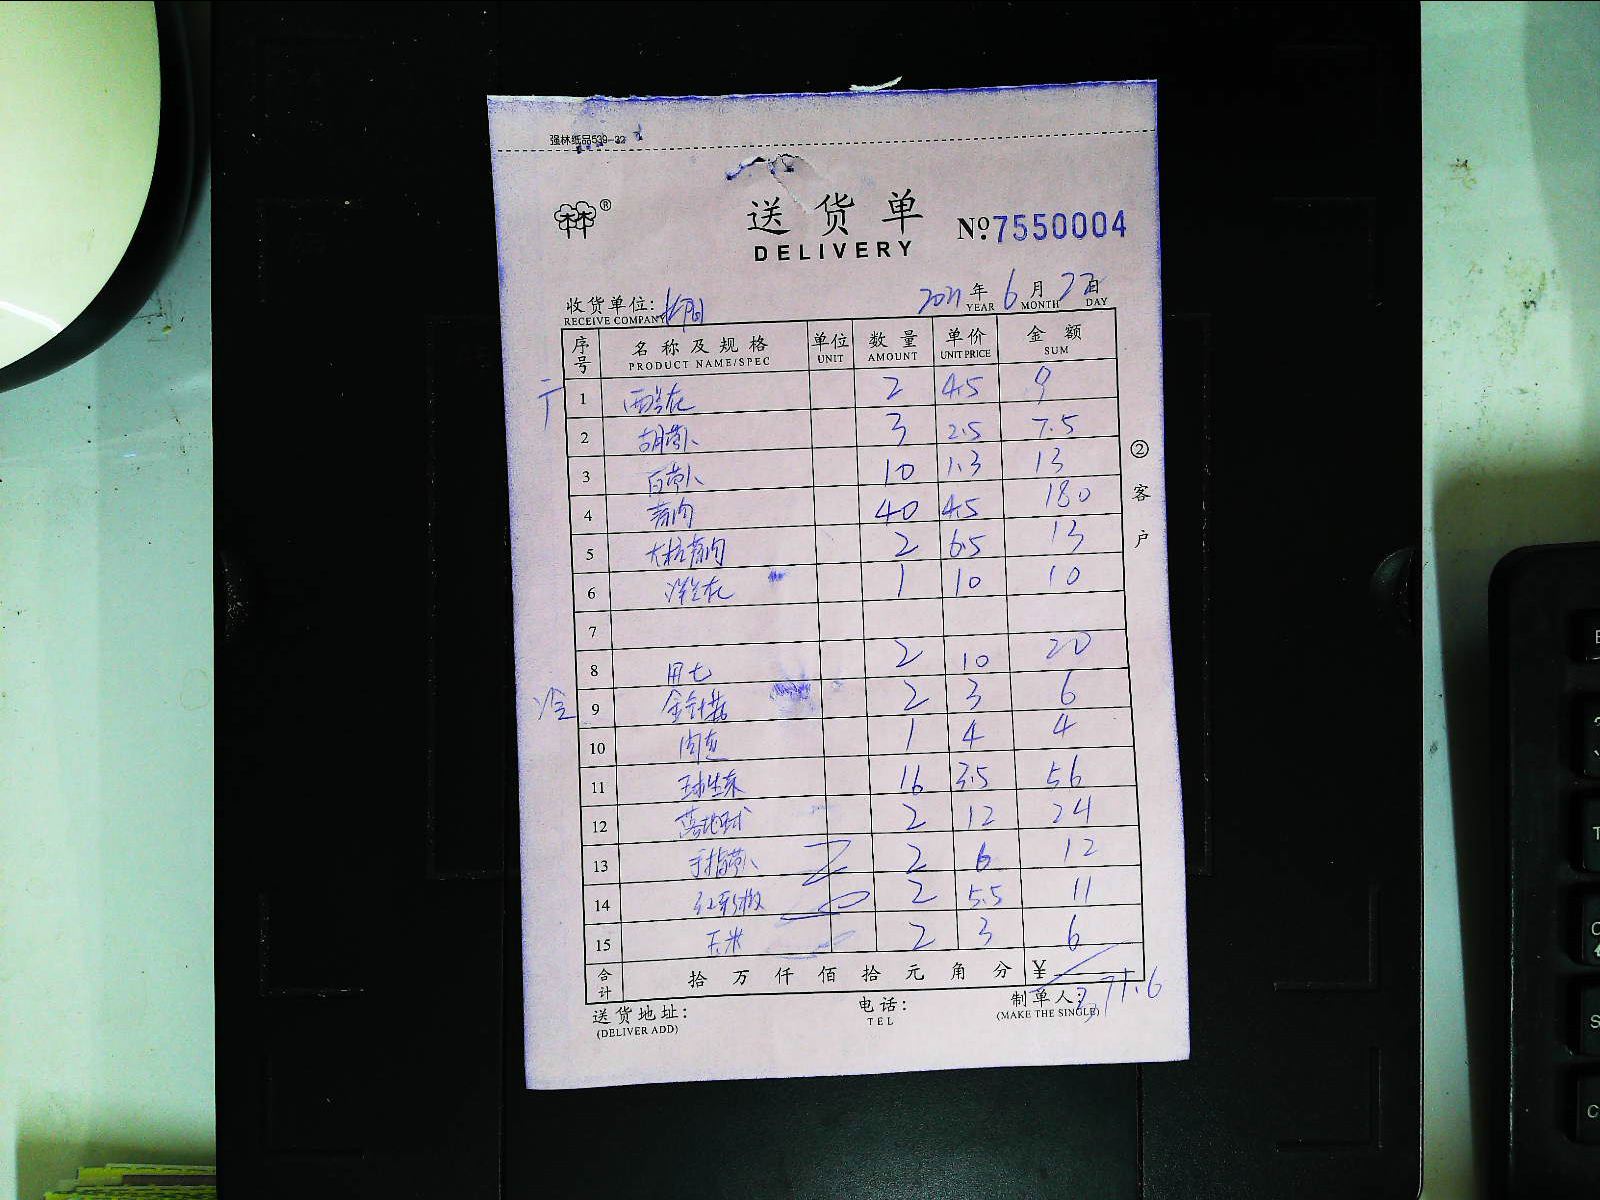 强林纸品539-33
®
送货单
DELIVERY
№:7550004
收货单位:
RECEIVE COMPANY
2021年6月 日
YEAR MONTH DAY
序号 名称及规格 单位 数量 单价 金额
PRODUCT NAME/SPEC UNIT AMOUNT UNIT PRICE SUM
1 西兰花 2 4.5 9
2 胡萝卜 3 2.5 7.5
3 白萝卜 10 1.3 13
4 40 4.5 180
5 2 6.5 13
6 1 10 10
7
8 2 10 20
冷 9 金针菇 2 3 6
10 1 4 4
11 球生菜 16 3.5 56
12 2 12 24
13 手指萝卜 2 6 12
14 红彩椒 2 5.5 11
15 玉米 2 3 6
合计 拾万仟佰拾元角分 ¥
371.6
送货地址: 电话: 制单人:
(DELIVER ADD) TEL (MAKE THE SINGLE)
②客户